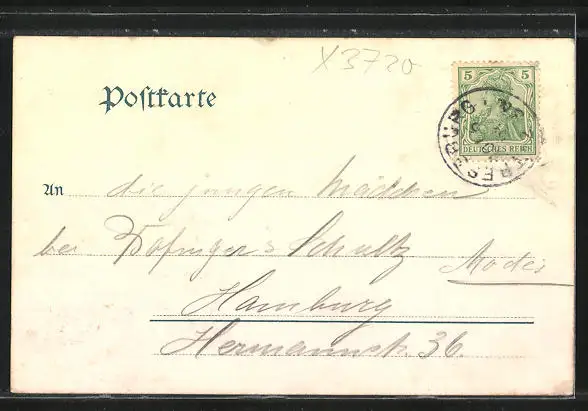 X3720
Postkarte
5 5
DEUTSCHES REICH
An die jungen Mädchen
bei Schultz
Modes
Hamburg
Hermannstr. 36.